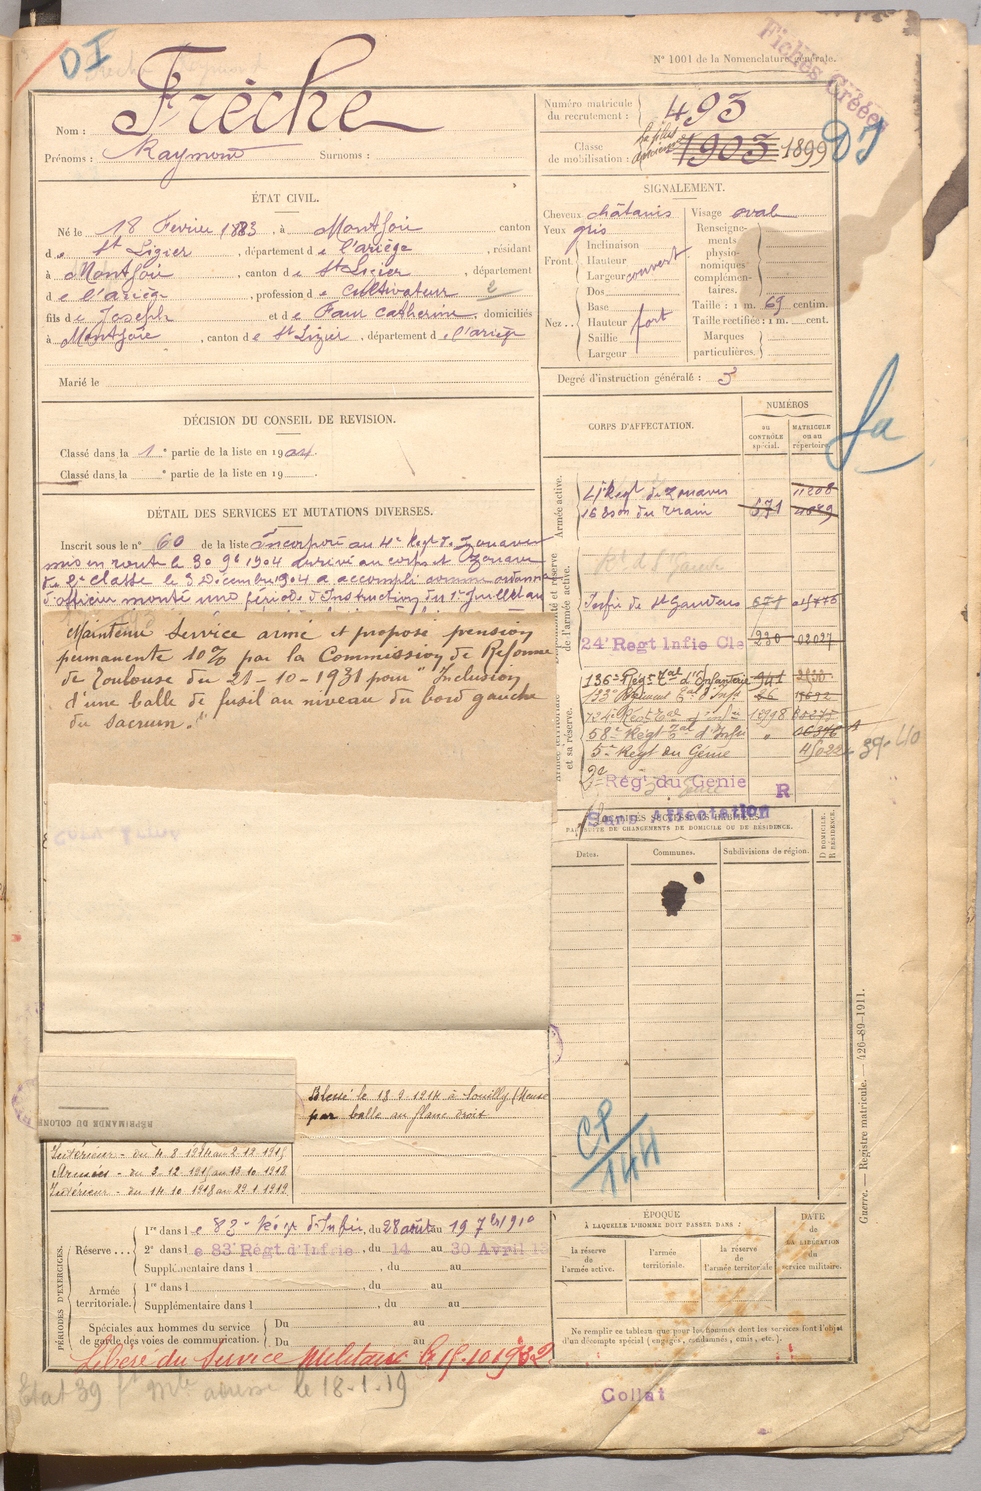 DI
Fiches Créées
N° 1001 de la Nomenclature générale.
Nom : Frèche
Prénoms : Raymond Surnoms :
Numéro matricule du recrutement : 493
Classe de mobilisation : 1903 1899
DI
ÉTAT CIVIL.
Né le 18 Fevrier 1883, à Montfoie canton
de St Ligier, département de l'ariège, résidant
à Montfoie, canton de St Licier, département
de l'ariège, profession de cultivateur 2
fils de Joseph et de Faur Catherine, domiciliés
à Montfoie, canton de St Lizier, département de l'ariège
Marié le
SIGNALEMENT.
Cheveux châtains
Yeux gris
Front Inclinaison Hauteur Largeur couvert
Nez Dos Base Hauteur Saillie Largeur fort
Visage oval
Renseignements physionomiques complémentaires.
Taille : 1 m. 69 centim.
Taille rectifiée : 1 m. cent.
Marques particulières.
Degré d'instruction générale : 3
DÉCISION DU CONSEIL DE REVISION.
Classé dans la 1e partie de la liste en 1904.
Classé dans la e partie de la liste en 19
DÉTAIL DES SERVICES ET MUTATIONS DIVERSES.
Inscrit sous le n° 60 de la liste Incorporé au 4e Regt de Zouaves
mis en route le 30 9bre 1904 arrivé au corps et Zouave
de 2e classe le 3 Decembre 1904 a accompli comme ordonnance
d'officier monté une période d'Instruction du 1er Juillet au
Maintenu Service armé et proposé pension
permanente 10% par la Commission de Réforme
de Toulouse du 21-10-1931 pour "Inclusion
d'une balle de fusil au niveau du bord gauche
du sacrum."
RÉPRIMANDE DU COLONE
Blessé le 18-9-1914 à Souilly (Meuse
par balle au flanc droit
Intérieur - du 4 8 1914 au 2 12 1915
Armées - du 3 12 1915 au 13 10 1918
Intérieur - du 14 10 1918 au 29 1 1919
CORPS D'AFFECTATION.
NUMÉROS
au CONTRÔLE spécial.
MATRICULE ou au répertoire.
fa
Armée active.
4e Regt de Zouaves 11208
16 Eson du Train 671 4879
Disponibilité et réserve de l'armée active.
Rt de St Gaudens
Infie de St Gaudens 671 015775
24e Regt Infie Cle 230 02027
Armée territoriale et sa réserve.
136e Régt Tal d'Infanterie 941
133e Régiment Tal d'Infie 66
134e Régt Tal d'Infie 12998
58e Régt Tal d'Infie "
5e Régt du Génie 39-40
2e Rég. du Génie R
Sans Affectation
LOCALITÉS SUCCESSIVES HABITÉES
PAR SUITE DE CHANGEMENTS DE DOMICILE OU DE RÉSIDENCE.
Dates. Communes. Subdivisions de région. D DOMICILE. R RÉSIDENCE.
CP
144
PÉRIODES D'EXERCICES.
Réserve... 1re dans le 83e Régt d'Infie, du 28 août au 19 7bre 1910
2e dans le 83e Régt d'Infie, du 14 au 30 Avril 13
Supplémentaire dans l , du au
Armée territoriale. 1re dans l , du au
Supplémentaire dans l , du au
Spéciales aux hommes du service de garde des voies de communication. Du au
Du au
ÉPOQUE
À LAQUELLE L'HOMME DOIT PASSER DANS :
la réserve de l'armée active.
l'armée territoriale.
la réserve de l'armée territoriale.
DATE de LA LIBÉRATION du service militaire.
Ne remplir ce tableau que pour les hommes dont les services font l'objet
d'un décompte spécial (engagés, condamnés, omis, etc.).
Guerre. — Registre matricule. — 426-89-1911.
Libéré du Service Militaire le 15.10 1932
Etat 39 le 18-1-19
Collat